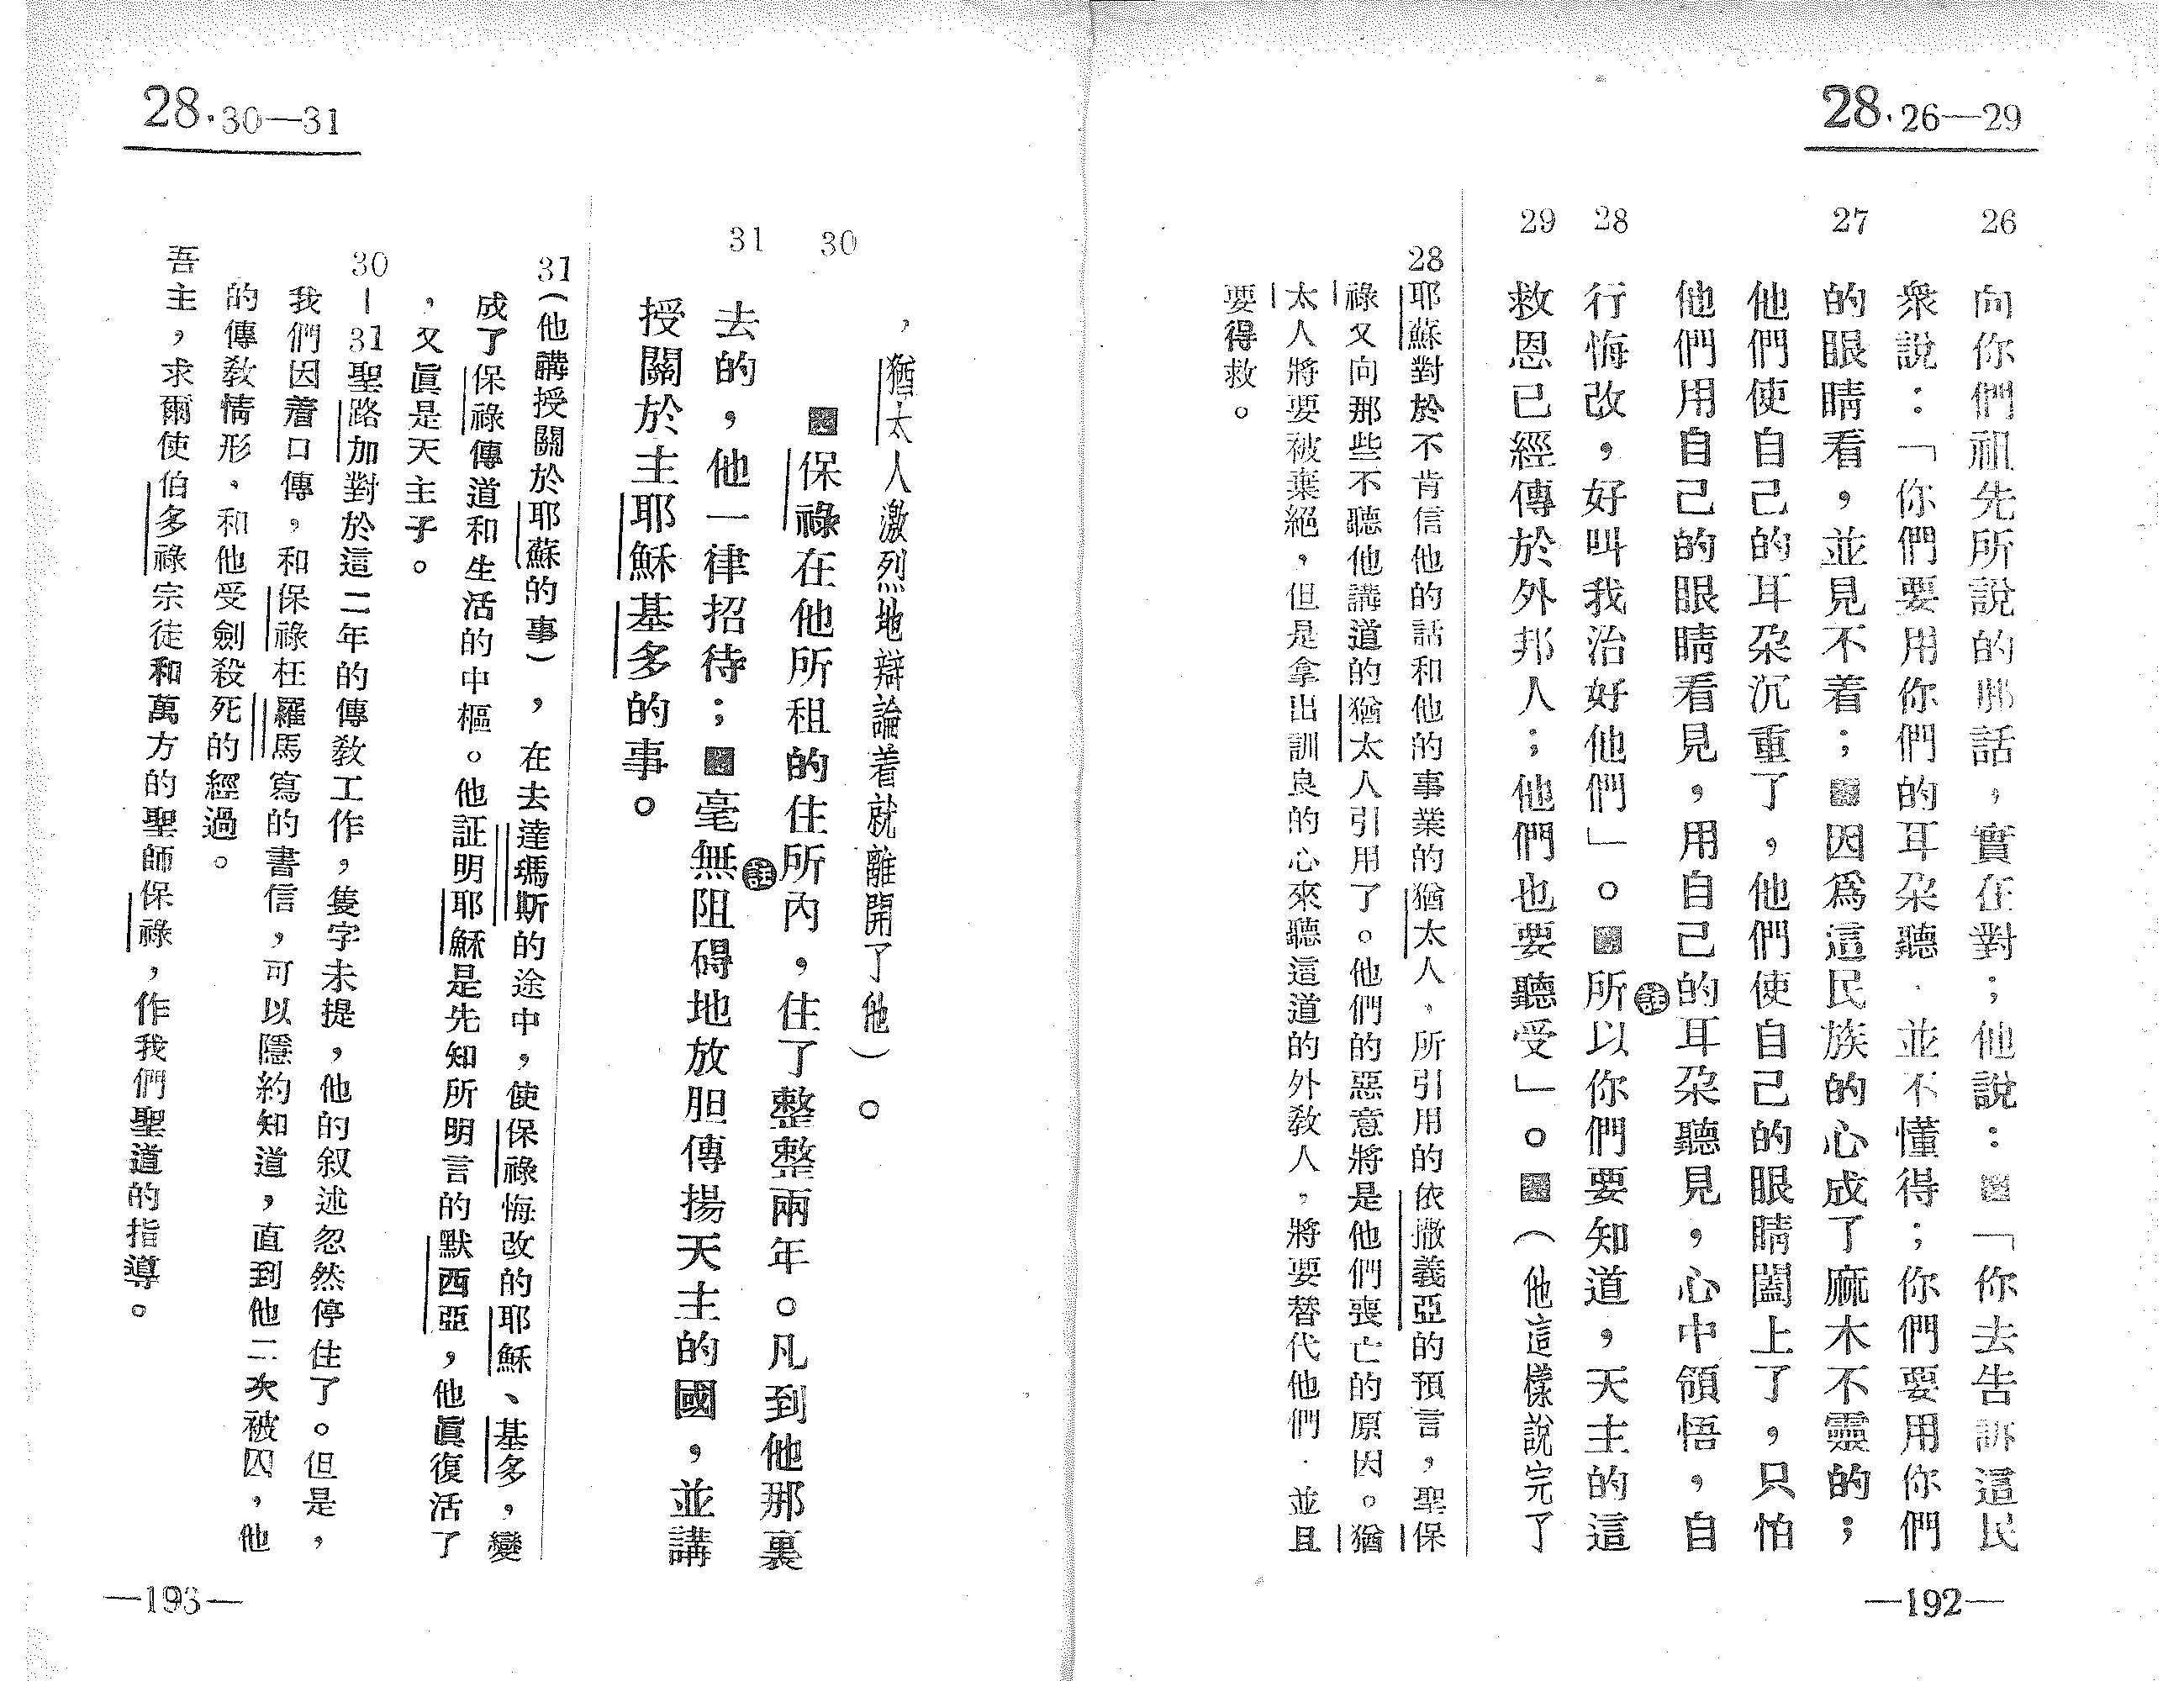 28.26—29
26
向你們祖先所說的那話，實在對；他說：「你去告訴這民
衆說：「你們要用你們的耳朶聽．並不懂得；你們要用你們
27
的眼睛看，並見不着；因爲這民族的心成了麻木不靈的；
他們使自己的耳朶沉重了，他們使自己的眼睛闔上了，只怕
他們用自己的眼睛看見，用自己的耳朶聽見，心中領悟，自
28
行悔改，好叫我治好他們」。所㊟以你們要知道，天主的這
29
救恩已經傳於外邦人；他們也要聽受」。（他這樣說完了
28耶蘇對於不肯信他的話和他的事業的猶太人，所引用的依撒義亞的預言，聖保
祿又向那些不聽他講道的猶太人引用了。他們的惡意將是他們喪亡的原因。猶
太人將要被棄絕，但是拿出訓良的心來聽這道的外敎人，將要替代他們．並且
要得救。
—192—
28.30—31
，猶太人激烈地辯論着就離開了他）。
30
保祿在他所租的住所內，住了整整兩年。凡到他那裏
31
去的，他一律招待；毫無㊟阻碍地放胆傳揚天主的國，並講
授關於主耶穌基多的事。
31（他講授關於耶蘇的事），在去達瑪斯的途中，使保祿悔改的耶穌、基多，變
成了保祿傳道和生活的中樞。他証明耶穌是先知所明言的默西亞，他眞復活了
，又眞是天主子。
30—31聖路加對於這二年的傳敎工作，隻字未提，他的叙述忽然停住了。但是，
我們因着口傳，和保祿在羅馬寫的書信，可以隱約知道，直到他二次被囚，他
的傳敎情形、和他受劍殺死的經過。
吾主，求爾使伯多祿宗徒和萬方的聖師保祿，作我們聖道的指導。
—193—